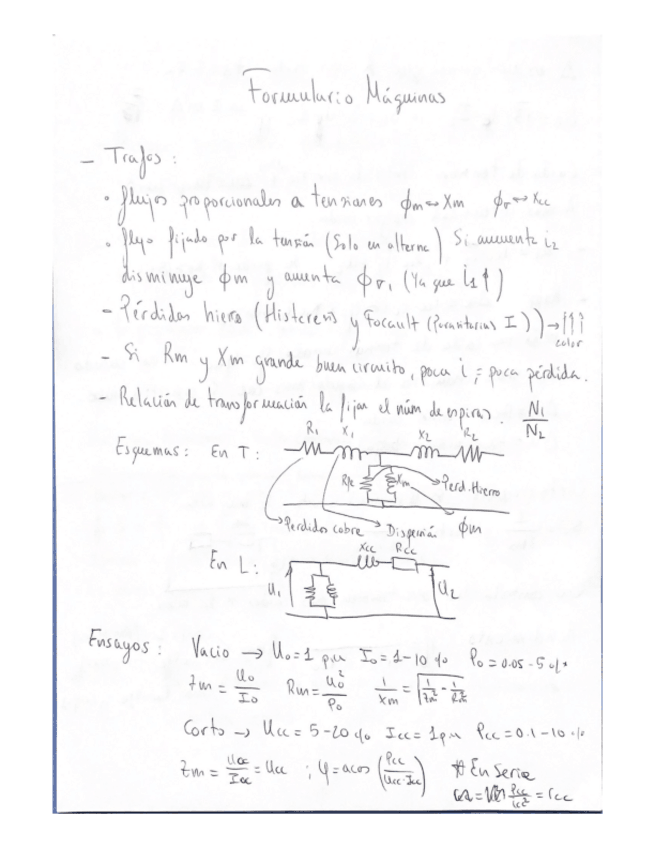 Formulario Máquinas
- Trafos:
• flujos proporcionales a tensiones ϕm↔Xm ϕσ↔Xcc
• flujo fijado por la tensión (Solo en alterna) Si aumenta i2
disminuye ϕm y aumenta ϕσ1 (Ya que i1↑)
- Pérdidas hierro (Histeresis y Focault (Parasitarias I))→↑↑↑
calor
- Si Rm y Xm grande buen circuito, poca i = poca pérdida.
- Relación de transformación la fijan el núm de espiras. N1/N2
R1 X1 X2 R2
Esquemas: En T:
Rfe Xm → Perd. Hierro
→ Perdidas cobre → Dispersión ϕm
Xcc Rcc
En L:
U1 U2
Ensayos: Vacio → U0=1 pu I0=1-10 % P0=0.05-5 %
Zm = U0/I0 Rm = U0²/P0 1/Xm = √(1/Zm² - 1/Rm²)
Corto → Ucc = 5-20 % Icc = 1pu Pcc = 0.1-10 %
Zm = Ucc/Icc = Ucc ; φ = acos (Pcc/(Ucc·Icc)) * En Serie
Pcc/icc² = rcc